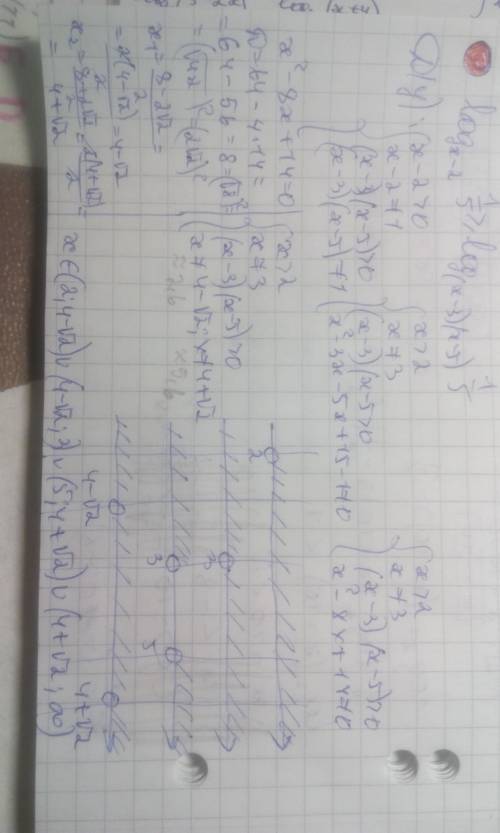 log_{x-2} 1/5 ≥ log_{(x-3)(x-5)} 1/5
{ x-2>0
x-2≠1
(x-3)(x-5)>0
(x-3)(x-5)≠1
{ x>2
x≠3
(x-3)(x-5)>0
x²-3x-5x+15-1≠0
{ x>2
x≠3
(x-3)(x-5)>0
x²-8x+14≠0
x²-8x+14=0
D=64-4·14=
=64-56=8=(√8)²=
=(√4·2)²=(2√2)²
x₁=(8-2√2)/2=
=2(4-√2)/2=4-√2
x₂=(8+2√2)/2=2(4+√2)/2=
=4+√2
{ x>2
x≠3
(x-3)(x-5)>0
x≠4-√2; x≠4+√2
2
3
3 5
4-√2 4+√2
x∈(2;4-√2)∪(4-√2;3)∪(5;4+√2)∪(4+√2;∞)